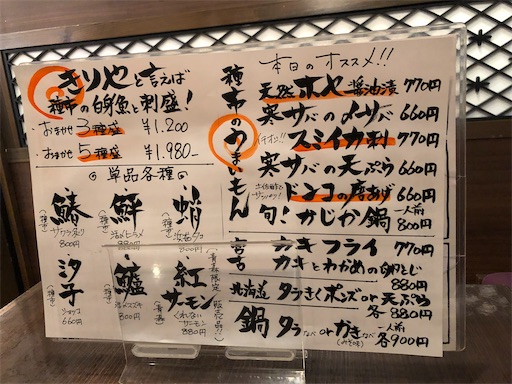 きりやと言えば
種市の白身魚と刺盛！
・おまかせ 3種盛 ¥1.200
・おまかせ 5種盛 ¥1.980-
◎単品各種◎
鰆
(種市)
サワラ炙り
800円
鮃
(種市)
活〆ヒラメ
880円
蛸
(種市)
800円
汐子
(種市)
ショッコ
660円
鱸
(種市)
活〆スズキ
800円
紅サーモン
(青森)
くれないサーモン
880円
(青森限定販売品!!)
本日のオススメ!!
種市のうまいもん
天然ホヤ醤油漬 770円
寒サバのメーサバ 660円
イチオシ!!
スミイカ刺 770円
寒サバの天ぷら 660円
ドンコの唐あげ 660円
旬！かじか鍋 一人前 800円
宮古
カキフライ 770円
カキとわかめの卵とじ 880円
北海道 タラきくポンズor天ぷら 各880円
鍋 タラなべorかきなべ(みそ味) 一人前 各900円